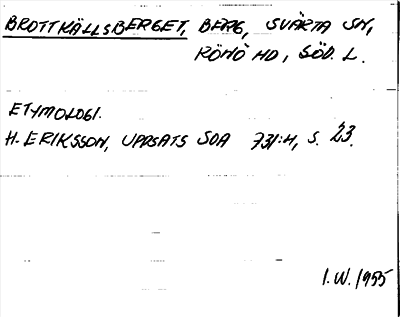 BROTTKÄLLSBERGET, BERG, SVÄRTA SN,
RÖNÖ HD, SÖD. L.
ETYMOLOGI.
H. ERIKSSON, UPPSATS SOA 731:4, S. 23.
I.W. 1955